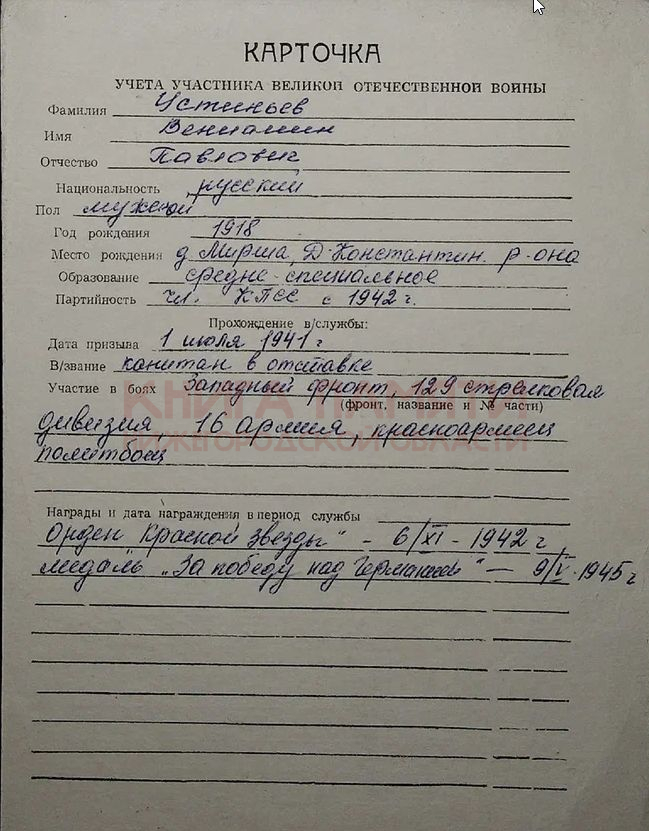 КАРТОЧКА
УЧЕТА УЧАСТНИКА ВЕЛИКОЙ ОТЕЧЕСТВЕННОЙ ВОЙНЫ
Фамилия Устиньев
Имя Вениамин
Отчество Павлович
Национальность русский
Пол мужской
Год рождения 1918
Место рождения д. Мирша, Д-Константин. р-она
Образование средне-специальное
Партийность чл. КПСС с 1942 г.
Прохождение в/службы:
Дата призыва 1 июля 1941 г
В/звание капитан в отставке
Участие в боях Западный фронт, 129 стрелковая
(фронт, название и № части)
дивизия, 16 армия, красноармеец
политбоец
КНИГА ПАМЯТИ
НИЖЕГОРОДСКОЙ ОБЛАСТИ
Награды и дата награждения в период службы
Орден "Красной Звезды" - 6/XI - 1942 г
медаль „За победу над Германией" — 9/V-1945 г